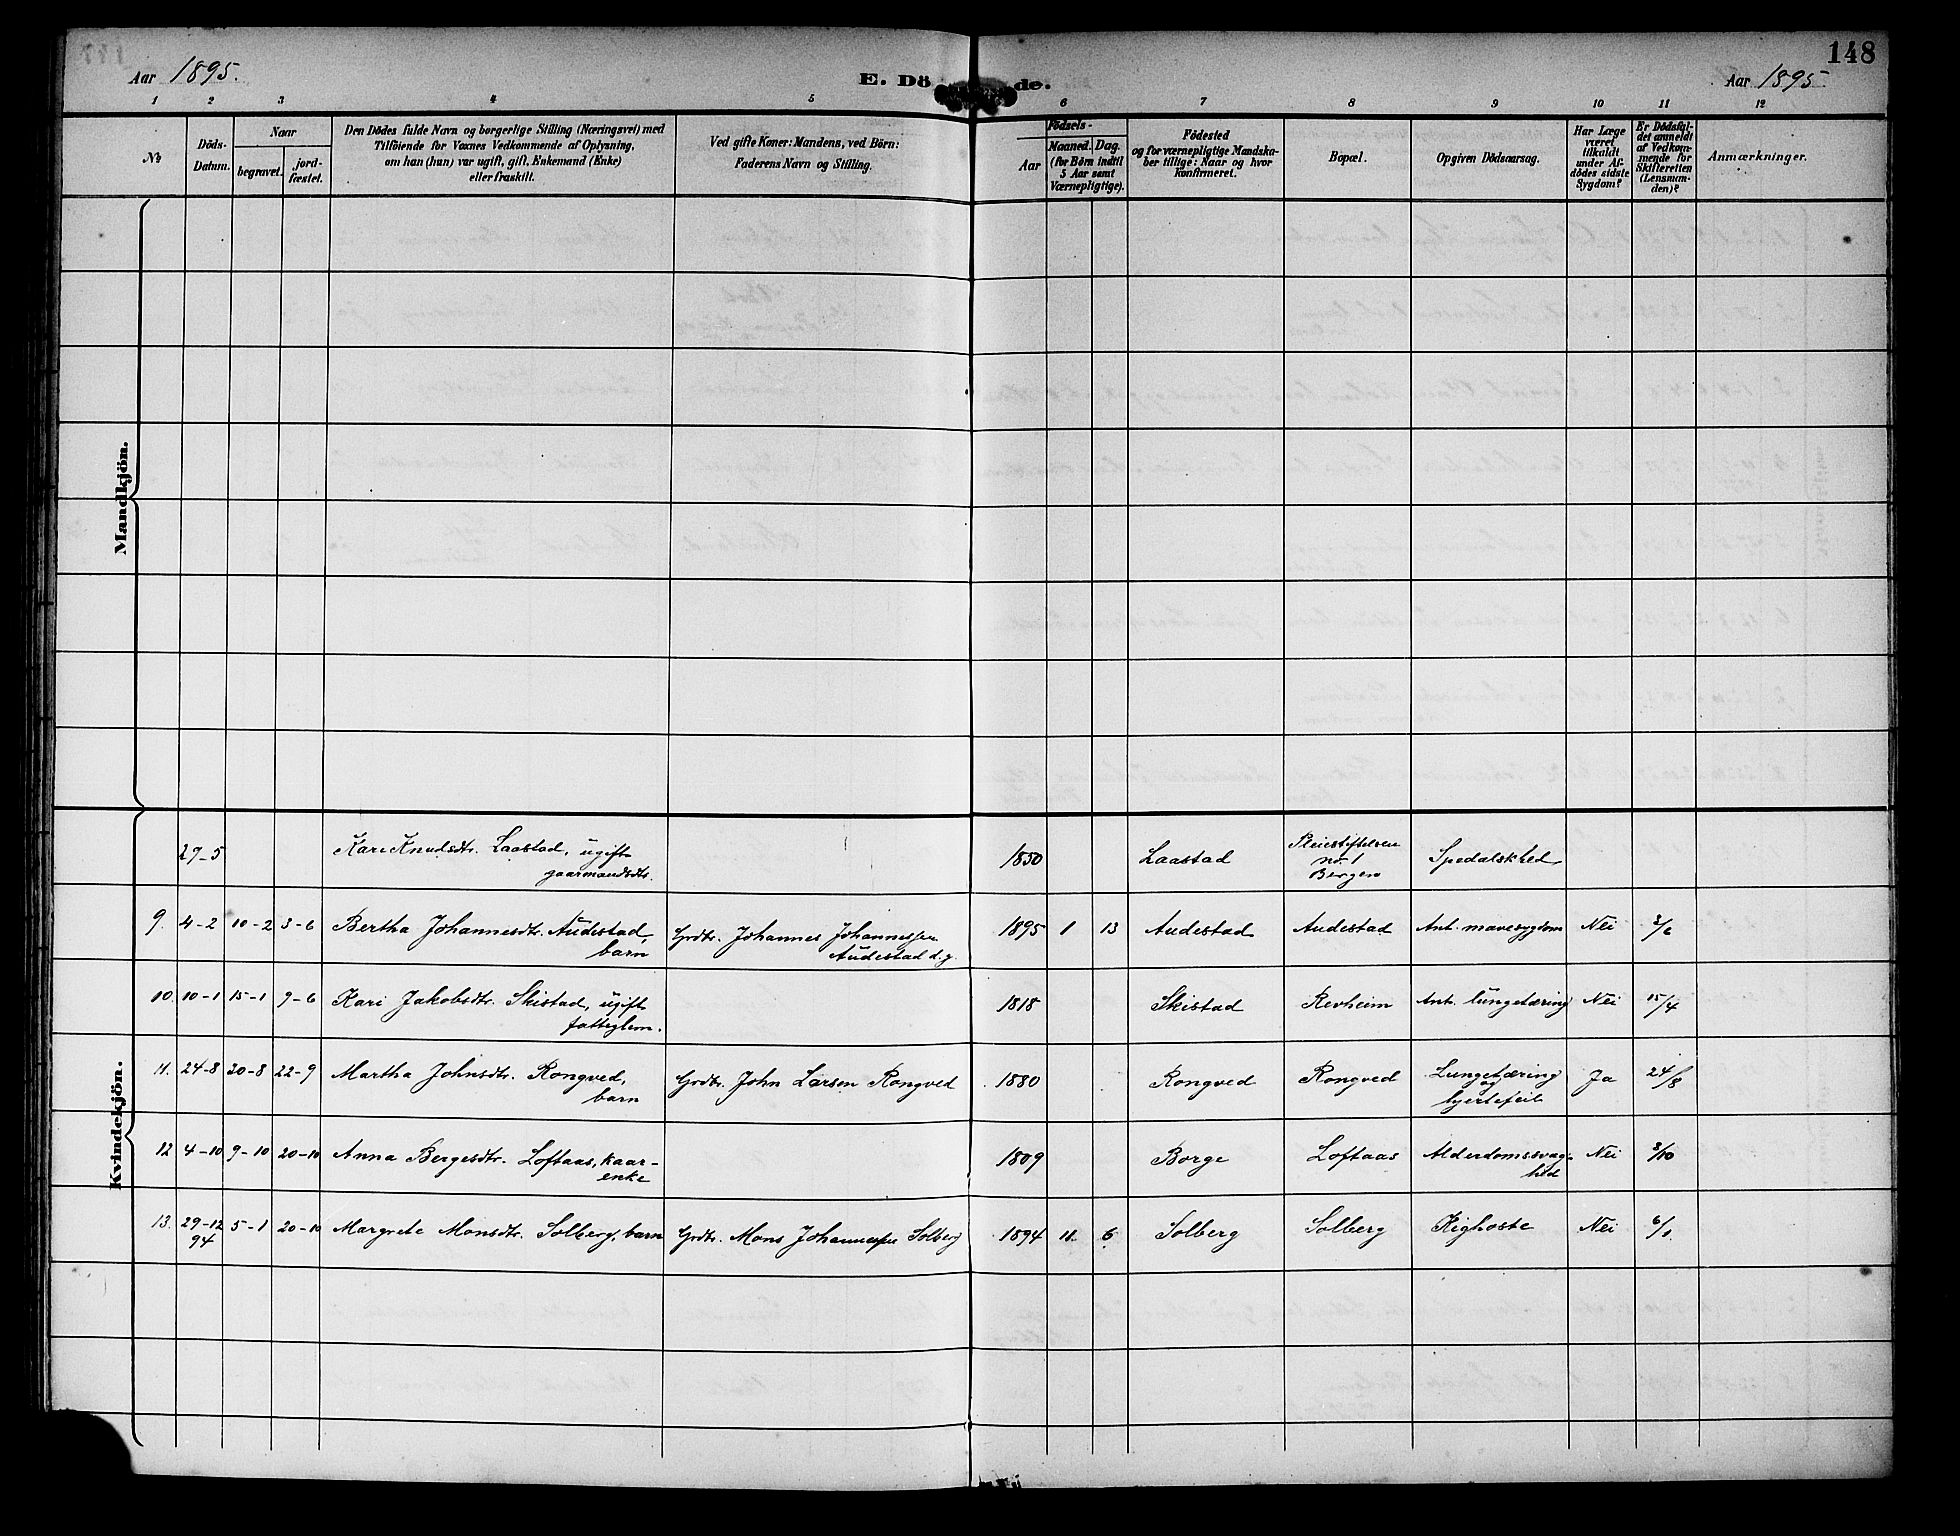 148
Aar 1895.
E. Dö de.
Aar 1895
1 2 3 4 5 6 7 8 9 10 11 12
No
Döds-Datum.
Naar
begravet.
jord-fæstet.
Den Dödes fulde Navn og borgerlige Stilling (Næringsvei) med
Tilföiende for Voxnes Vedkommende af Oplysning,
om han (hun) var ugift, gift, Enkemand (Enke)
eller fraskilt.
Ved gifte Koner: Mandens, ved Börn:
Faderens Navn og Stilling.
Födsels-
Aar
Maaned.
Dag.
(for Börn indtil
5 Aar samt
Værnepligtige).
Födested
og for værnepligtige Mandska-
ber tillige: Naar og hvor
konfirmeret.
Bopæl.
Opgiven Dödsaarsag.
Har Læge
været
tilkaldt
under Af-
dödes sidste
Sygdom?
Er Dödsfal-
det anmeldt
af Vedkom-
mende for
Skifteretten
(Lensman-
den)?
Anmærkninger.
Mandkjön.
Kvindekjön.
29-5 Kari Knudsdtr. Laastad, ugift
gaarmandsdtr.
1850 Laastad Pleiestiftelsen
no. 1
Bergen
Spedalskhed
9. 4-2 10-2 3-6 Bertha Johannesdtr. Audestad,
barn
Grdbr. Johannes Johannessen
Audestad d.y.
1895 1 13 Audestad Audestad Ant. mavesygdom Nei 3/6
10. 10-1 15-1 9-6 Kari Jakobsdtr. Skistad, ugift
fattiglem.
1818 Skistad Revheim Ant. lungetæring Nei 15/4
11. 24-8 30-8 22-9 Martha Johnsdtr. Rongved,
barn
Grdbr. John Larsen Rongved
1880 Rongved Rongved Lungetæring
og
hjertefeil
Ja 24/8
12 4-10 9-10 20-10 Anna Bergesdtr. Loftaas, kaar-
enke
1809 Borge Loftaas Alderdomssvag-
hed
Nei 8/10
13. 29-12 5-1 20-10 Margrete Monsdtr. Solberg, barn Grdbr. Mons Johannessen Solberg
94
1894 11. 6 Solberg Solberg Kighoste Nei 6/1